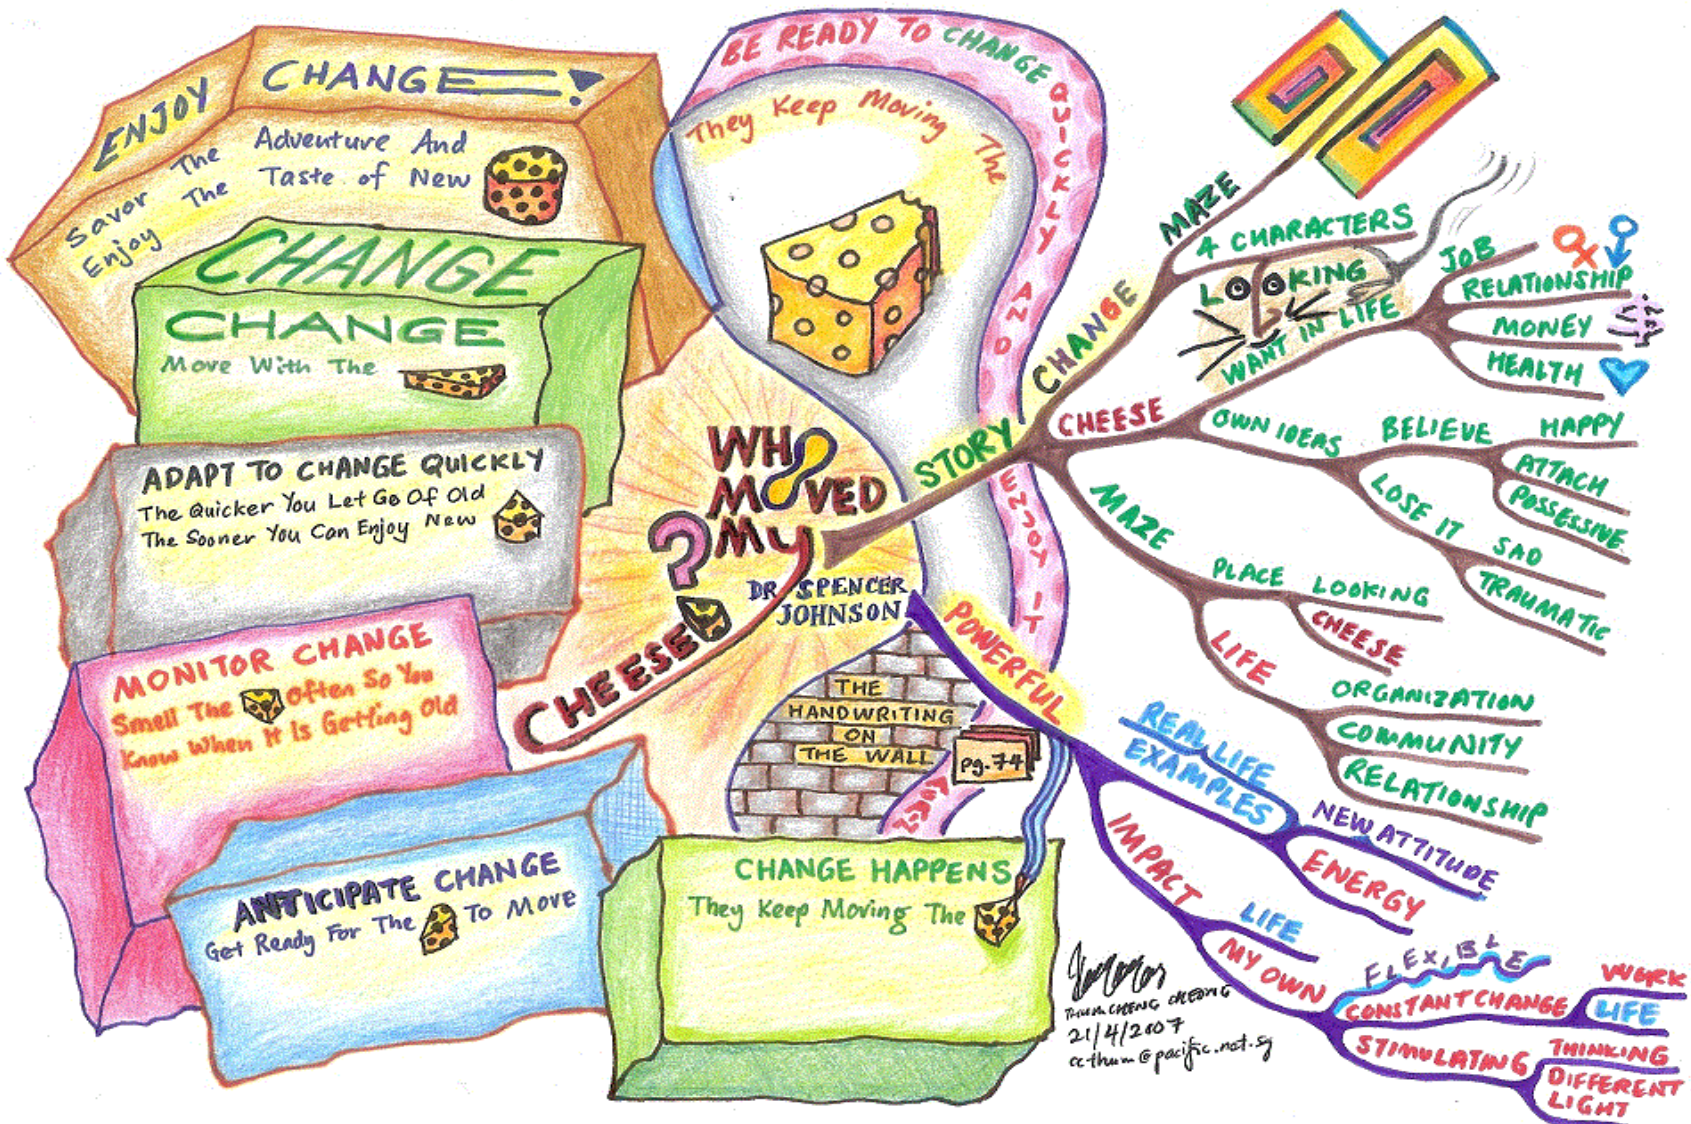 ENJOY CHANGE!
Savor The Adventure And
Enjoy The Taste of New
CHANGE
CHANGE
Move With The
ADAPT TO CHANGE QUICKLY
The Quicker You Let Go Of Old
The Sooner You Can Enjoy New
MONITOR CHANGE
Smell The Often So You
Know When It Is Getting Old
ANTICIPATE CHANGE
Get Ready For The To Move
CHANGE HAPPENS
They Keep Moving The
WHO
MOVED
MY
CHEESE
?
DR SPENCER
JOHNSON
BE READY TO CHANGE QUICKLY AND ENJOY IT AGAIN
They Keep Moving The
THE
HANDWRITING
ON
THE WALL
pg. 74
STORY
CHANGE
MAZE
4 CHARACTERS
CHEESE
LOOKING
WANT IN LIFE
JOB
RELATIONSHIP
MONEY
HEALTH
OWN IDEAS
BELIEVE
HAPPY
ATTACH
POSSESSIVE
LOSE IT
SAD
TRAUMATIC
MAZE
PLACE
LOOKING
CHEESE
LIFE
ORGANIZATION
COMMUNITY
RELATIONSHIP
POWERFUL
REAL LIFE
EXAMPLES
NEW ATTITUDE
ENERGY
IMPACT
LIFE
MY OWN
FLEXIBLE
CONSTANT CHANGE
WORK
LIFE
STIMULATING
THINKING
DIFFERENT
LIGHT
THUM CHENG CHEONG
21/4/2007
ccthum@pacific.net.sg